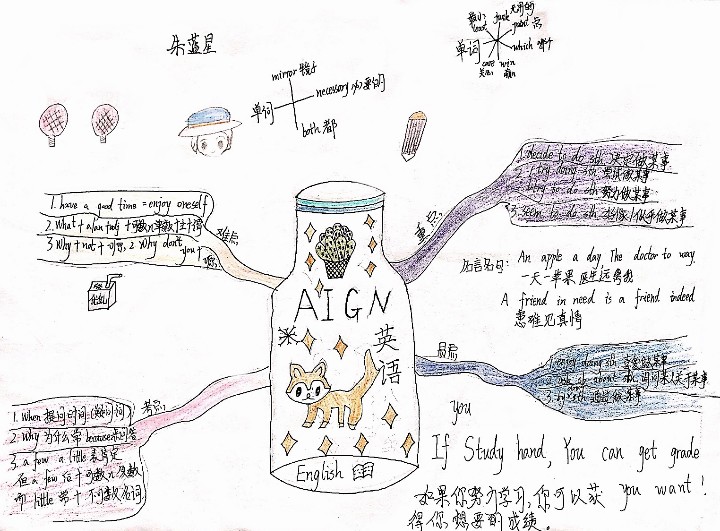 朱蓝星
mirror 镜子
necessary 必要的
单词
both 都
junk 无用的
point 点
单词
which 哪个
care
win
1. have a good time = enjoy oneself
2. What + a/an + adj + 可数n单数 + 主 + 谓
3 Why + not + 动原, 2 Why don't
you +
难点
重点
1. decide to do sth 决定做某事
2. try doing sth 尝试做某事
try to do sth 努力做某事
3. seem to do sth
名言名句: An apple a day The doctor to way.
一天一苹果 医生远离我
A friend in need is a friend indeed
患难见真情
AIGN
英语
English
考点
1. When 提问时间
2. Why 为什么 常 because 来回答
3. a few a little 表肯定
但 a few 后 + 可数n复数
而 little 常 + 不可数名词
易点
1. enjoy doing sth 喜欢做某事
about sth 询问某人关于某事
3. by + sth
you
If Study hand, You can get grade
you want!
如果你努力学习,你可以获
得你想要的成绩.